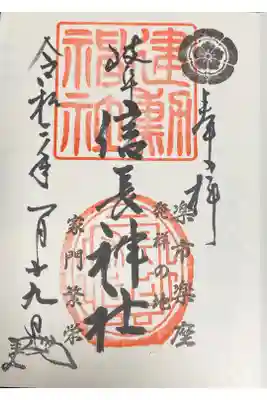 奉拝
楽市楽座
発祥の地
岐阜信長神社
建勲
神社
家門繁栄
令和二年一月十九日